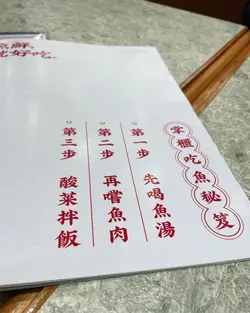 魚鮮
就好吃。
掌櫃吃魚秘笈
第一步 先喝魚湯
第二步 再嚐魚肉
第三步 酸菜拌飯